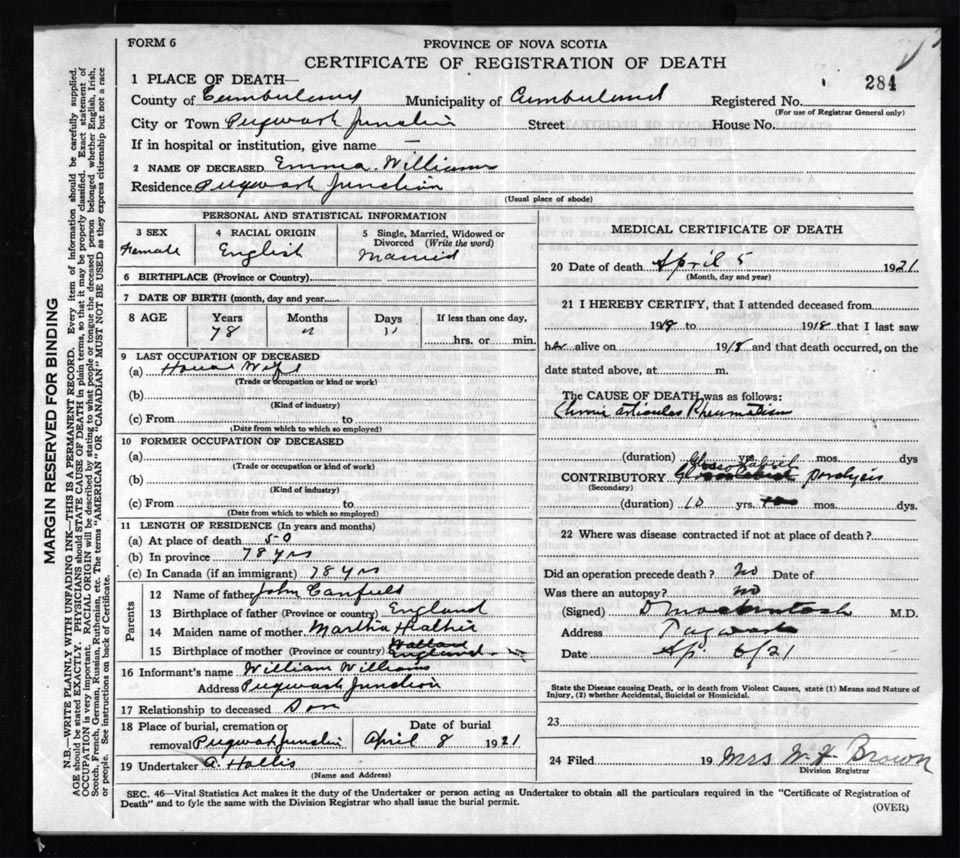 FORM 6
PROVINCE OF NOVA SCOTIA
CERTIFICATE OF REGISTRATION OF DEATH
284
1 PLACE OF DEATH—
County of Cumberland Municipality of Cumberland Registered No.
(For use of Registrar General only)
City or Town Pugwash Junction Street House No.
If in hospital or institution, give name —
2 NAME OF DECEASED Emma Williams
Residence Pugwash Junction
(Usual place of abode)
PERSONAL AND STATISTICAL INFORMATION
3 SEX
Female
4 RACIAL ORIGIN
English
5 Single, Married, Widowed or Divorced (Write the word)
Married
6 BIRTHPLACE (Province or Country)
7 DATE OF BIRTH (month, day and year
8 AGE Years Months Days If less than one day,
78 11 hrs. or min.
9 LAST OCCUPATION OF DECEASED
(a) House Wife
(Trade or occupation or kind or work)
(b)
(Kind of industry)
(c) From to
(Date from which to which so employed)
10 FORMER OCCUPATION OF DECEASED
(a)
(Trade or occupation or kind or work)
(b)
(Kind of industry)
(c) From to
(Date from which to which so employed)
11 LENGTH OF RESIDENCE (In years and months)
(a) At place of death 50
(b) In province 78 yrs
(c) In Canada (if an immigrant) 78 yrs
Parents
12 Name of father John Canfield
13 Birthplace of father (Province or country) England
14 Maiden name of mother Martha
15 Birthplace of mother (Province or country) Wallace
England
16 Informant's name William Williams
Address Pugwash Junction
17 Relationship to deceased Son
18 Place of burial, cremation or removal Pugwash Junction
Date of burial
April 8 1921
19 Undertaker A. Hollis
(Name and Address)
MEDICAL CERTIFICATE OF DEATH
20 Date of death April 5 1921
(Month, day and year)
21 I HEREBY CERTIFY, that I attended deceased from
1918 to 1918 that I last saw
her alive on 1918 and that death occurred, on the
date stated above, at m.
The CAUSE OF DEATH was as follows:
Chronic articular Rheumatism
(duration) yrs. mos. dys
Glosso Labial
CONTRIBUTORY paralysis
(Secondary)
(duration) 10 yrs. mos. dys.
22 Where was disease contracted if not at place of death?
Did an operation precede death? No Date of
Was there an autopsy? no
(Signed) D Mackintosh M.D.
Address Pugwash
Date Ap. 6/21
State the Disease causing Death, or in death from Violent Causes, state (1) Means and Nature of
Injury, (2) whether Accidental, Suicidal or Homicidal.
23
24 Filed 19 Mrs W. H Brown
Division Registrar
SEC. 46—Vital Statistics Act makes it the duty of the Undertaker or person acting as Undertaker to obtain all the particulars required in the "Certificate of Registration of
Death" and to fyle the same with the Division Registrar who shall issue the burial permit.
(OVER)
MARGIN RESERVED FOR BINDING
N.B.—WRITE PLAINLY WITH UNFADING INK—THIS IS A PERMANENT RECORD. Every item of information should be carefully supplied.
AGE should be stated EXACTLY. PHYSICIANS should STATE CAUSE OF DEATH in plain terms, so that it may be properly classified. Exact statement of
OCCUPATION is very important. RACIAL ORIGIN will be described by stating to what people or tongue the deceased person belonged whether English, Irish,
Scotch, French, German, Russian, Ruthenian, etc. The terms "AMERICAN" OR "CANADIAN" MUST NOT BE USED as they express citizenship but not a race
or people. See instructions on back of Certificate.